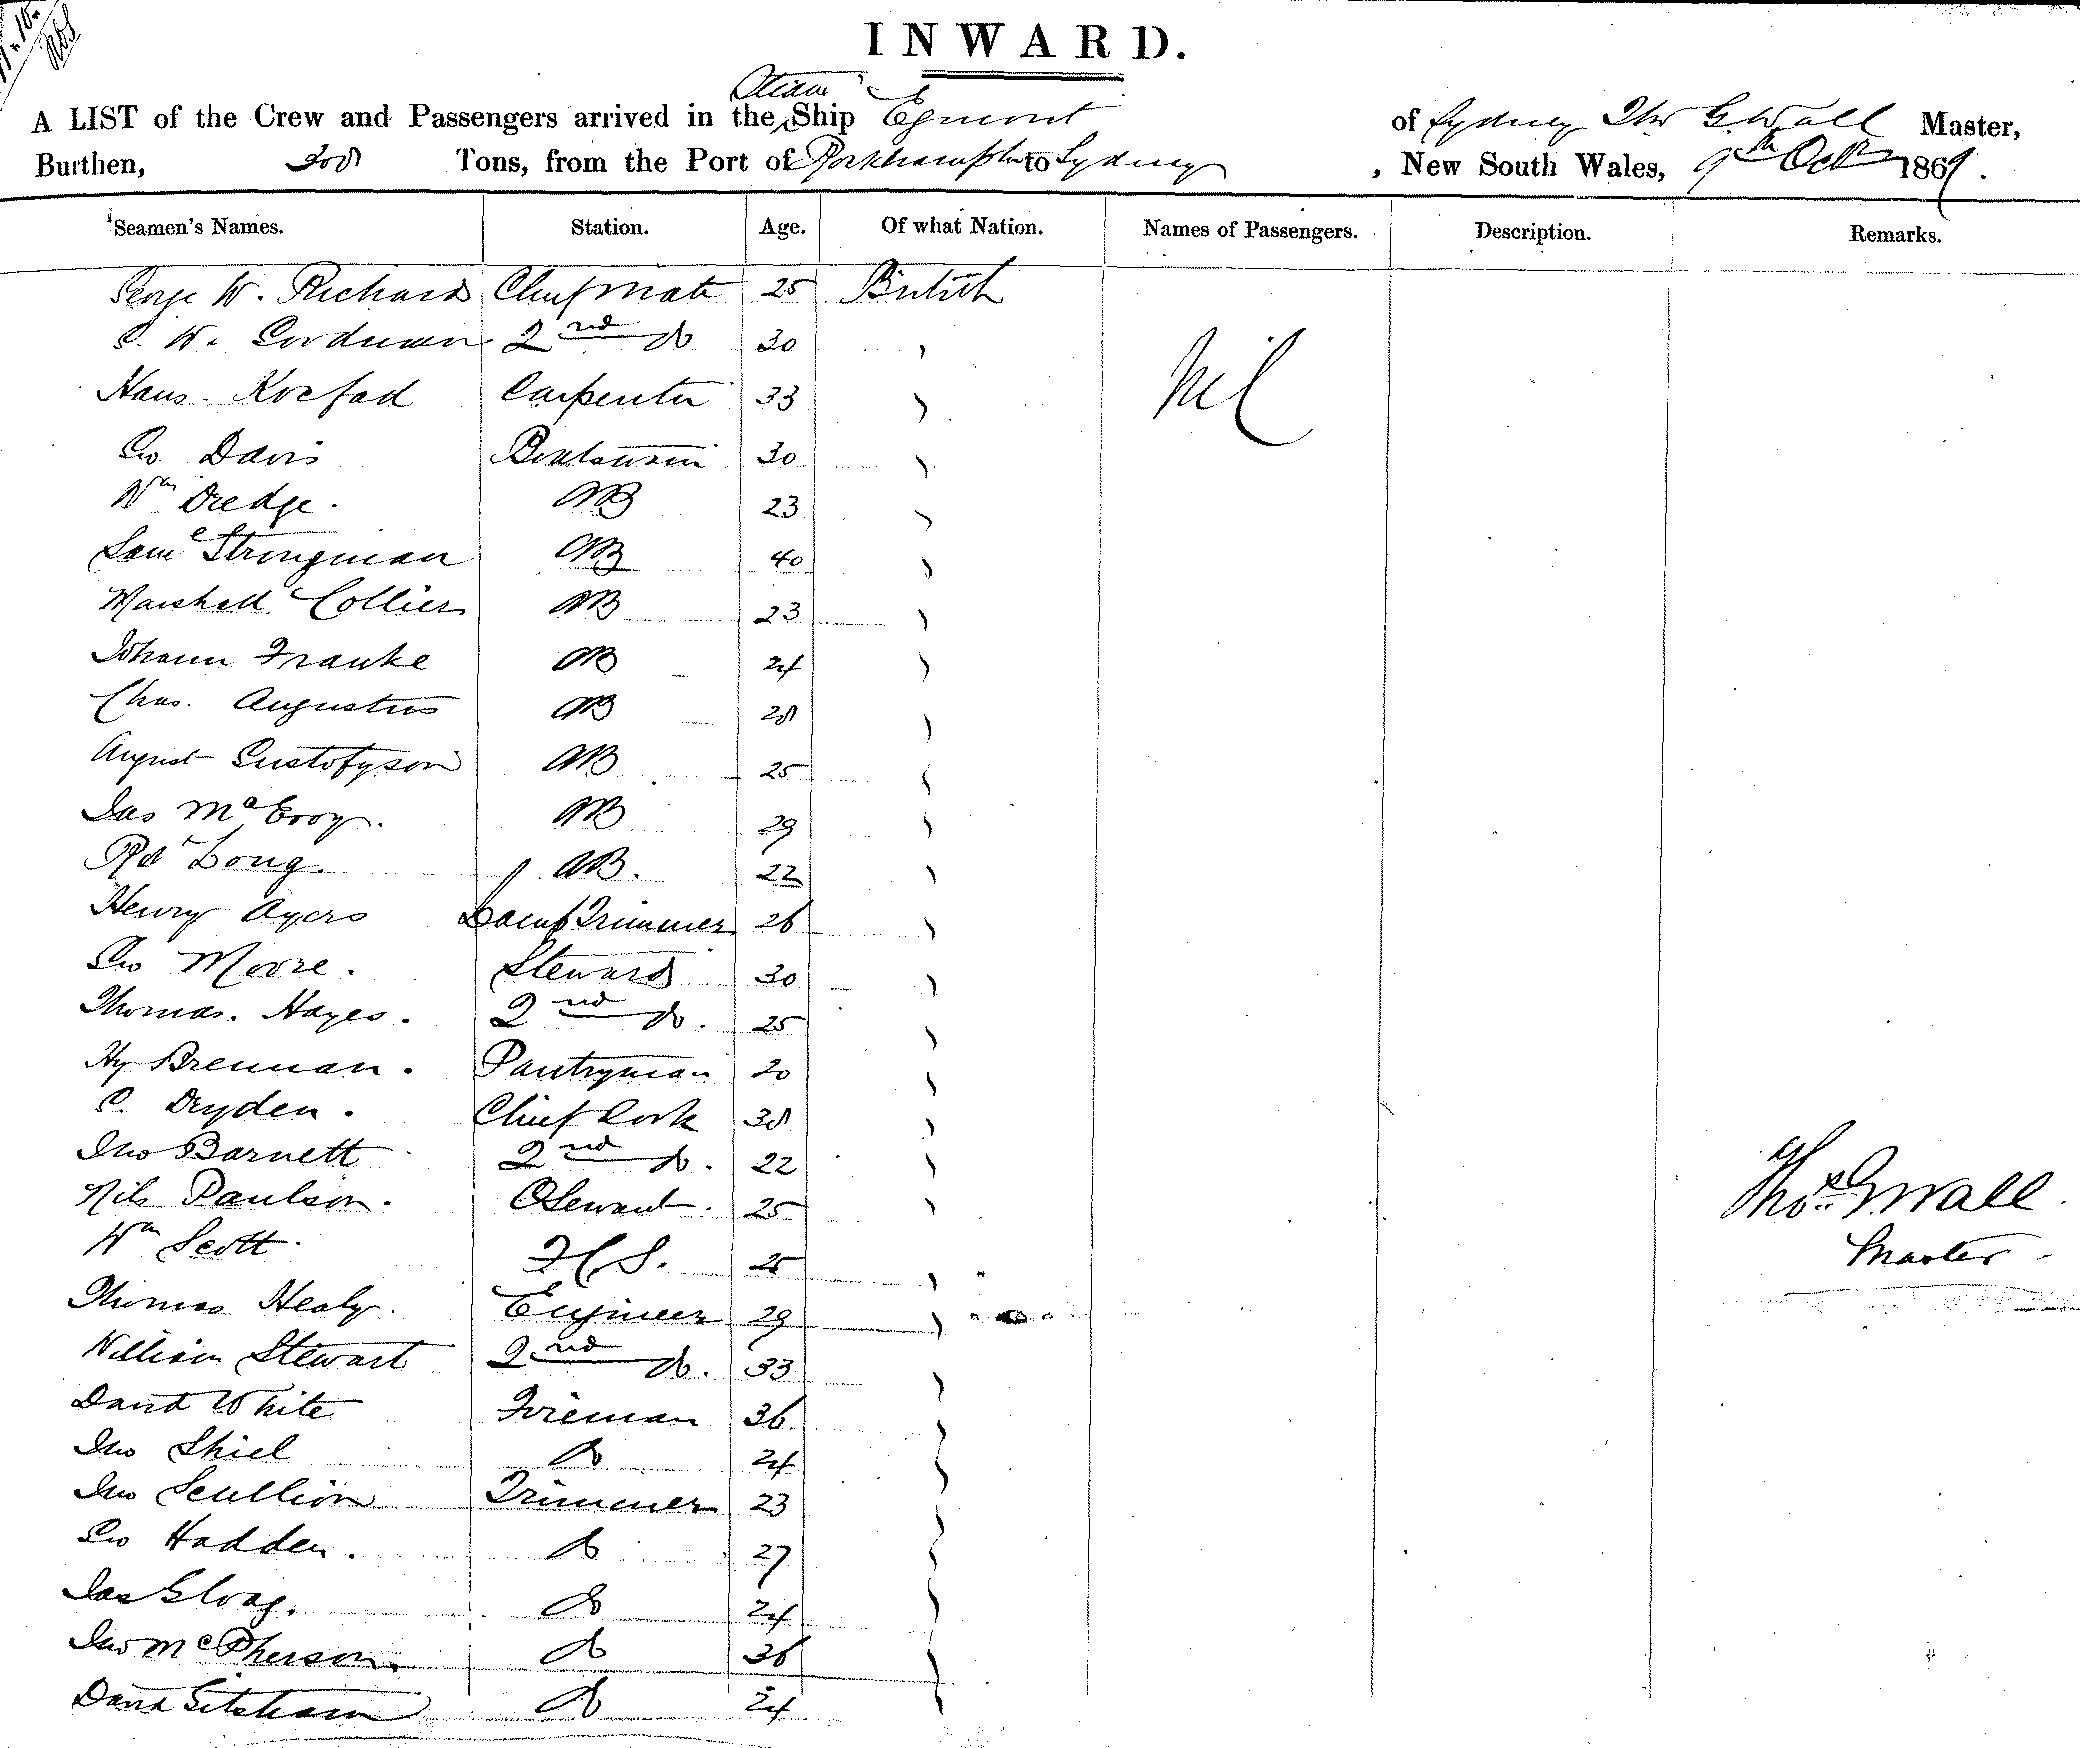 INWARD.
Steam
A LIST of the Crew and Passengers arrived in the Ship Egmont of Sydney Thos G. Wall Master,
Burthen, 308 Tons, from the Port of Rockhampton to Sydney, New South Wales, 9th Octr 1869.
Seamen's Names. Station. Age. Of what Nation. Names of Passengers. Description. Remarks.
George W. Richards Chief Mate 25 British
C. W. 2nd do 30 "
Nil
Hans Carpenter 33 "
Geo Davis 30 "
Wm Dredge. AB 23 "
Saml Strongman AB 40 "
Marshall Collier AB 23 "
Johann Franke AB 24 "
Chas. Augustus AB 28 "
August Gustofyson AB 25 "
Jas McEvoy. AB 29 "
Rd Long AB. 22 "
Henry Ayers Trimmer 26 "
Geo Moore. Steward 30 "
Thomas. Hayes. 2nd do. 25 "
Hy Brennan. Pantryman 20 "
C. Dryden. Chief Cook 38 "
Jno Barnett 2nd do. 22 "
Nils Paulson. 25 "
Thos G. Wall.
Wm Scott. 25 "
Master
Thomas Healy. Engineer 29 "
William Stewart 2nd do. 33 "
David White Fireman 36 "
Jno Shiel do 24 "
Jno Scullion Trimmer 23 "
Geo Hadden. do 27 "
Jas Gloag. do 24 "
Jno McPherson. do 36 "
David Gitsham do 24 "